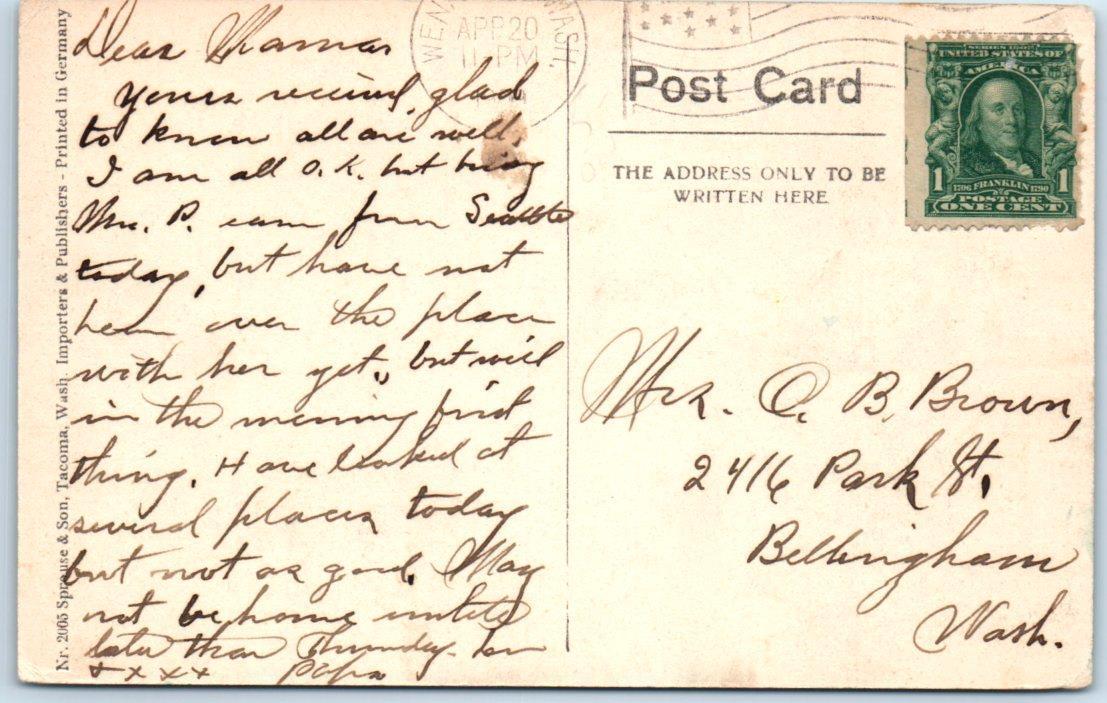 Dear Mamma
Yours received, glad
to know all are well,
I am all O.K. but
Mrs. P. came from Seattle
today, but have not
been over the place
with her yet, but will
in the morning first
thing. Have looked at
several places today
but not as good. May
not be home until
later than Thursday.
x x x x Papa
WEN WASH.
APR 20
11 PM
Post Card
THE ADDRESS ONLY TO BE
WRITTEN HERE
SERIES 1902
UNITED STATES OF
AMERICA
1 1706 FRANKLIN 1790 1
POSTAGE
ONE CENT
Mrs. O. B. Brown,
2416 Park St,
Bellingham
Wash.
Nr. 2005 Sprouse & Son, Tacoma, Wash. Importers & Publishers - Printed in Germany